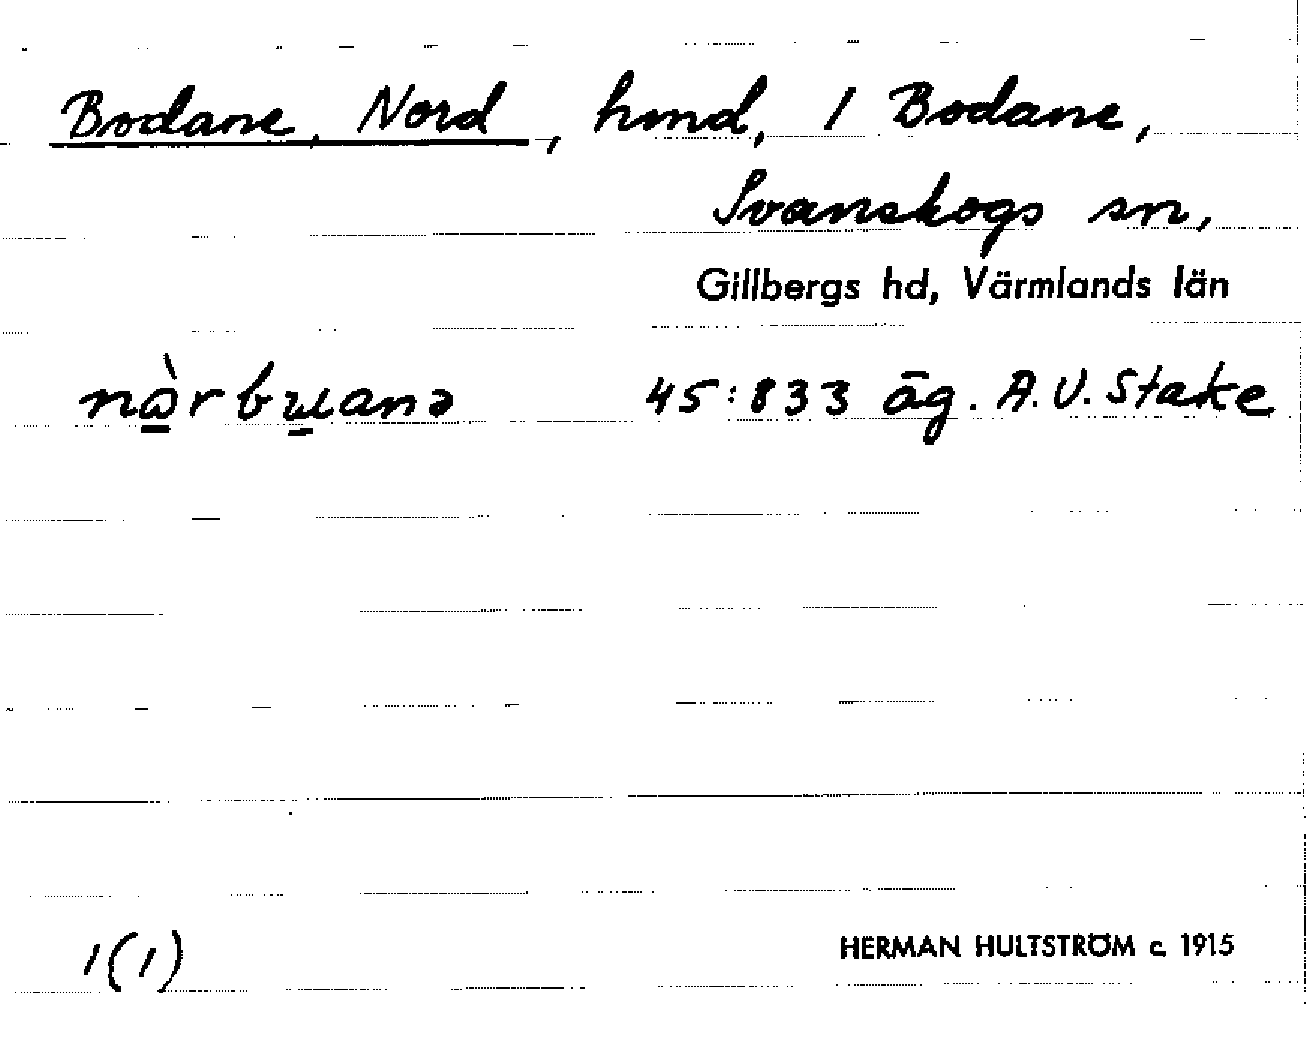 Bodane, Nord, hmd, 1 Bodane,
Svanskogs sn,
Gillbergs hd, Värmlands län
nὼ̲rbɯ̲anə 45:833 äg. A.V. Stake
1(1) HERMAN HULTSTRÖM c. 1915